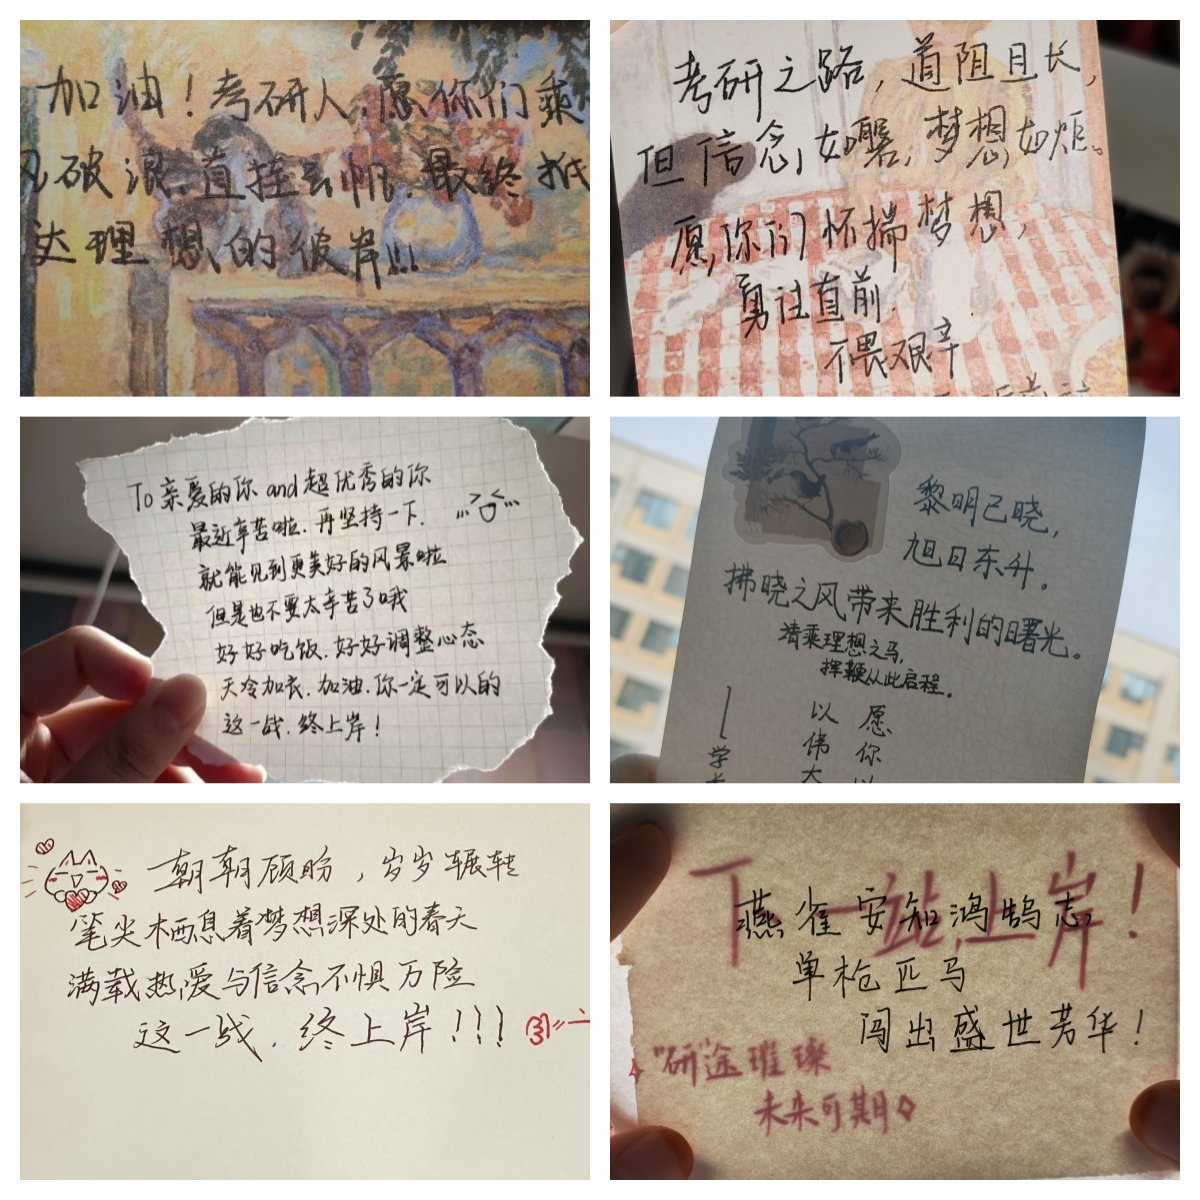 加油！考研人,愿你们乘
风破浪,直挂云帆,最终抵
达理想的彼岸!!!
考研之路,道阻且长,
但信念如磐,梦想如炬。
愿你们怀揣梦想,
勇往直前.
不畏艰辛
To 亲爱的你 and 超优秀的你
最近辛苦啦.再坚持一下.
就能见到更美好的风景啦
但是也不要太辛苦了哦
好好吃饭.好好调整心态
天冷加衣.加油.你一定可以的
这一战.终上岸!
黎明已晓,
旭日东升。
拂晓之风带来胜利的曙光。
请乘理想之马,
挥鞭从此启程。
愿你以
以伟大
—学长
朝朝顾盼,岁岁辗转
笔尖栖息着梦想深处的春天
满载热爱与信念不惧万险
这一战.终上岸!!!
下一站,上岸!
燕雀安知鸿鹄志,
单枪匹马
闯出盛世芳华!
"研"途璀璨
未来可期